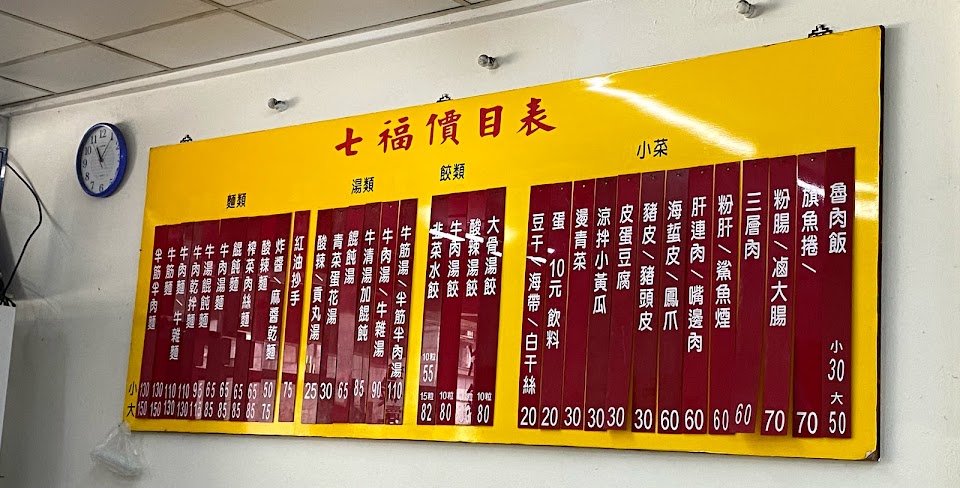 七福價目表
小菜
魯肉飯 小 30 大 50
旗魚捲/ 70
粉腸/滷大腸 70
三層肉 60
粉肝/鯊魚煙 60
肝連肉/嘴邊肉 60
海蜇皮/鳳爪 60
豬皮/豬頭皮 30
皮蛋豆腐 30
涼拌小黃瓜 30
燙青菜 30
蛋 10元 飲料 20
豆干/海帶/白干絲 20
餃類
大骨湯餃 10粒 80
酸辣湯餃
牛肉湯餃 10粒 80
韭菜水餃 10粒 55 15粒 82
湯類
牛筋湯/半筋半肉湯 110
牛肉湯/牛雜湯 90
牛清湯加餛飩 85
餛飩湯 65
青菜蛋花湯 30
酸辣/貢丸湯 25
麵類
小
大
紅油抄手 75
炸醬/麻醬乾麵 50 75
酸辣麵 65 85
榨菜肉絲麵 65 85
餛飩麵 65 85
牛肉湯麵 65 85
牛湯餛飩麵 95 115
牛肉乾拌麵 110 130
牛肉麵/牛雜麵 110 130
牛筋麵 130 150
半筋半肉麵 130 150